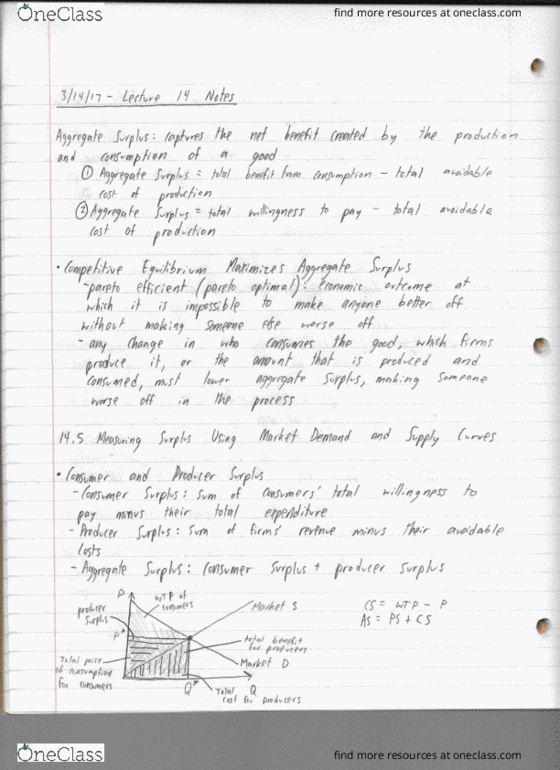 OneClass
find more resources at oneclass.com
3/14/17 - Lecture 14 Notes
Aggregate Surplus: captures the net benefit created by the production
and consumption of a good
① Aggregate Surplus = total benefit from consumption - total avoidable
cost of production
② Aggregate Surplus = total willingness to pay - total avoidable
cost of production
• Competitive Equilibrium Maximizes Aggregate Surplus
- pareto efficient (pareto optimal): economic outcome at
which it is impossible to make anyone better off
without making someone else worse off
- any change in who consumes the good, which firms
produce it, or the amount that is produced and
consumed, must lower aggregate surplus, making someone
worse off in the process
14.5 Measuring Surplus Using Market Demand and Supply Curves
• Consumer and Producer Surplus
- Consumer Surplus: sum of consumers' total willingness to
pay minus their total expenditure
- Producer Surplus: sum of firms' revenue minus their avoidable
costs
- Aggregate Surplus: consumer surplus + producer surplus
P
WTP of
consumers
Market S
CS = WTP - P
AS = PS + CS
producer
surplus
P*
total benefit
for producers
Market D
Total price
of consumption
for consumers
Q*
Q
Total
cost for producers
OneClass
find more resources at oneclass.com